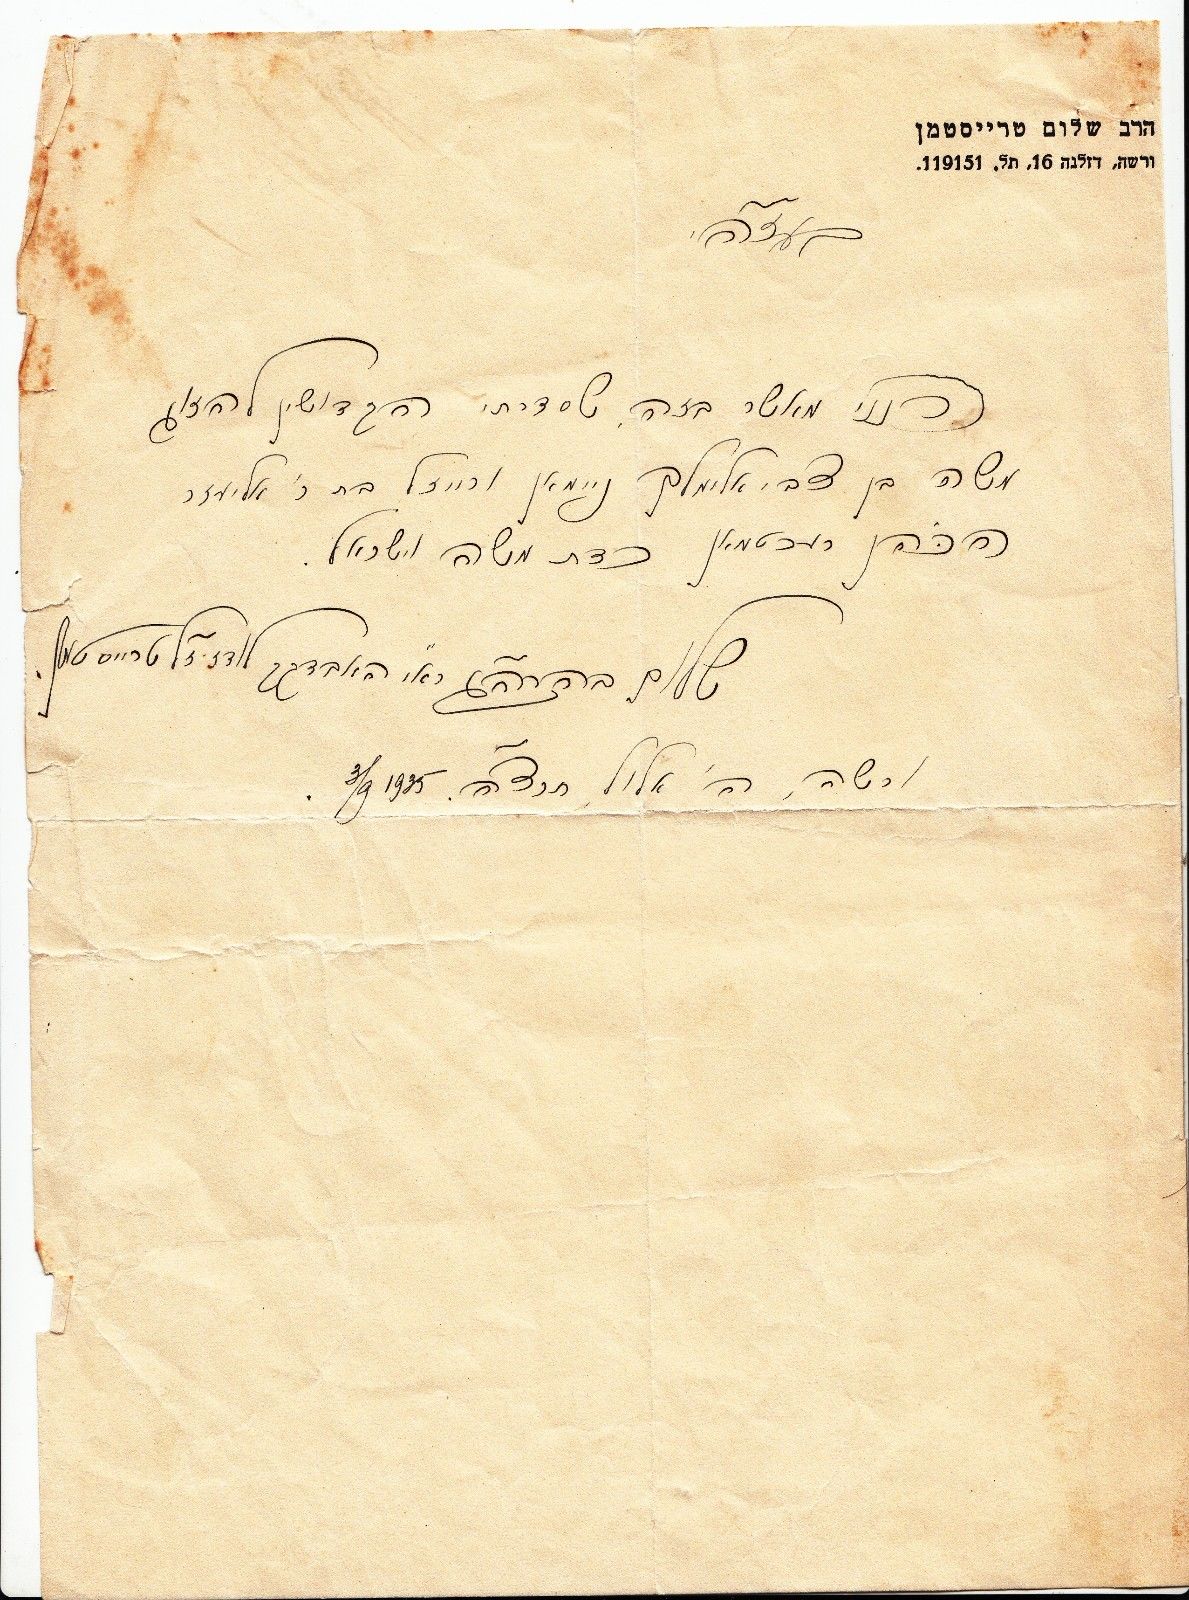 הרב שלום טרייסטמן
ורשה, דזלנה 16, תל. 119151.
בעזה"י
הנני מאשר בזה, שסדרתי הקדושין להזוג
משה בן צבי אלימלך ניימאן ורייזל בת ר' אליעזר
הכהן רעכטמאן כדת משה וישראל.
שלום בהרה"ג רא"י האבדק"ק לודז ז"ל טרייסטמן.
ורשה, ה' אלול, תרצ"ה. 3/9 1935.